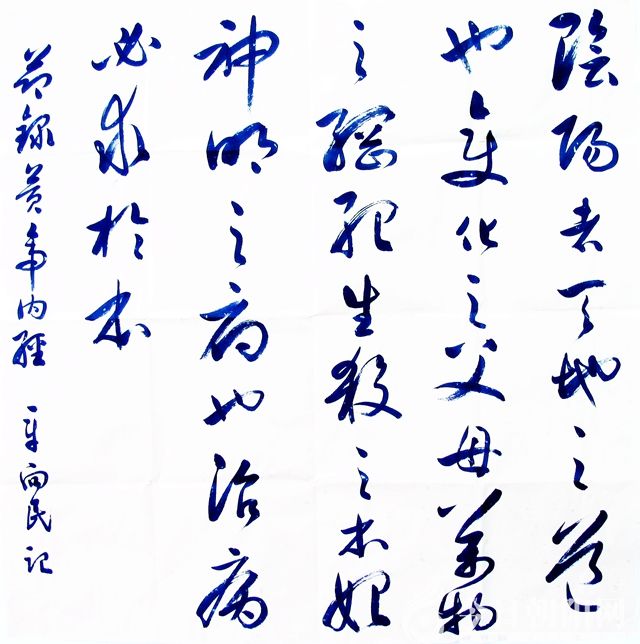 陰陽者天地之道
也變化之父母萬物
之綱紀生殺之本始
神明之府也治病
必求於本
節錄黃帝內經 向民記